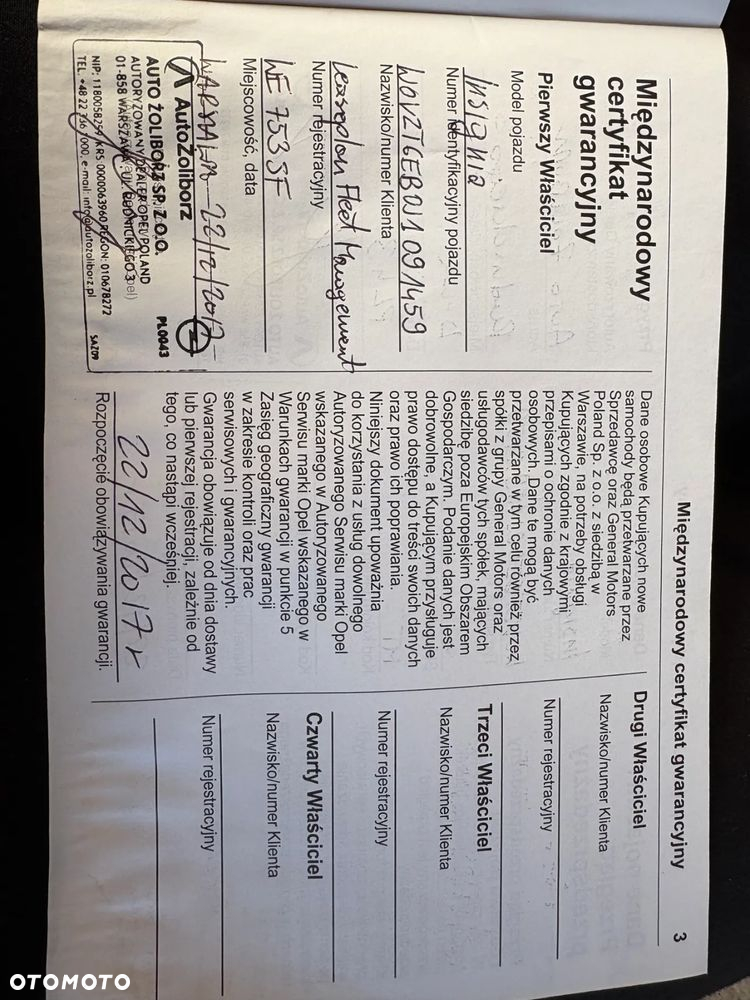 Międzynarodowy certyfikat gwarancyjny
3
Międzynarodowy
certyfikat
gwarancyjny
Pierwszy Właściciel
Model pojazdu
Insignia
Numer identyfikacyjny pojazdu
W0VZT6EBXJ1091459
Nazwisko/numer Klienta
Leaseplan Fleet Management
Numer rejestracyjny
WE 753SF
Miejscowość, data
WARSZAWA 22/12/2017
AutoŻoliborz
AUTO ŻOLIBORZ SP. Z O.O.
PL0043
AUTORYZOWANY DEALER OPEL POLAND
01-858 WARSZAWA, UL. RUDNICKIEGO 3
NIP: 1180058259, KRS 0000063960, REGON: 010678272
TEL. +48 22 396 7000, e-mail: info@autozoliborz.pl
SAZ09
Dane osobowe Kupujących nowe
samochody będą przetwarzane przez
Sprzedawcę oraz General Motors
Poland Sp. z o.o. z siedzibą w
Warszawie, na potrzeby obsługi
Kupujących zgodnie z krajowymi
przepisami o ochronie danych
osobowych. Dane te mogą być
przetwarzane w tym celu również przez
spółki z grupy General Motors oraz
usługodawców tych spółek, mających
siedzibę poza Europejskim Obszarem
Gospodarczym. Podanie danych jest
dobrowolne, a Kupującym przysługuje
prawo dostępu do treści swoich danych
oraz prawo ich poprawiania.
Niniejszy dokument upoważnia
do korzystania z usług dowolnego
Autoryzowanego Serwisu marki Opel
wskazanego w Autoryzowanego
Serwisu marki Opel wskazanego w
Warunkach gwarancji w punkcie 5
Zasięg geograficzny gwarancji
w zakresie kontroli oraz prac
serwisowych i gwarancyjnych.
Gwarancja obowiązuje od dnia dostawy
lub pierwszej rejestracji, zależnie od
tego, co nastąpi wcześniej.
22/12/2017 r
Rozpoczęcie obowiązywania gwarancji.
Drugi Właściciel
Nazwisko/numer Klienta
Numer rejestracyjny
Trzeci Właściciel
Nazwisko/numer Klienta
Numer rejestracyjny
Czwarty Właściciel
Nazwisko/numer Klienta
Numer rejestracyjny
OTOMOTO